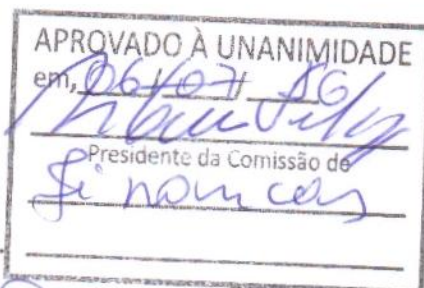 APROVADO À UNANIMIDADE
em, 06/07/
Presidente da Comissão de
Finanças